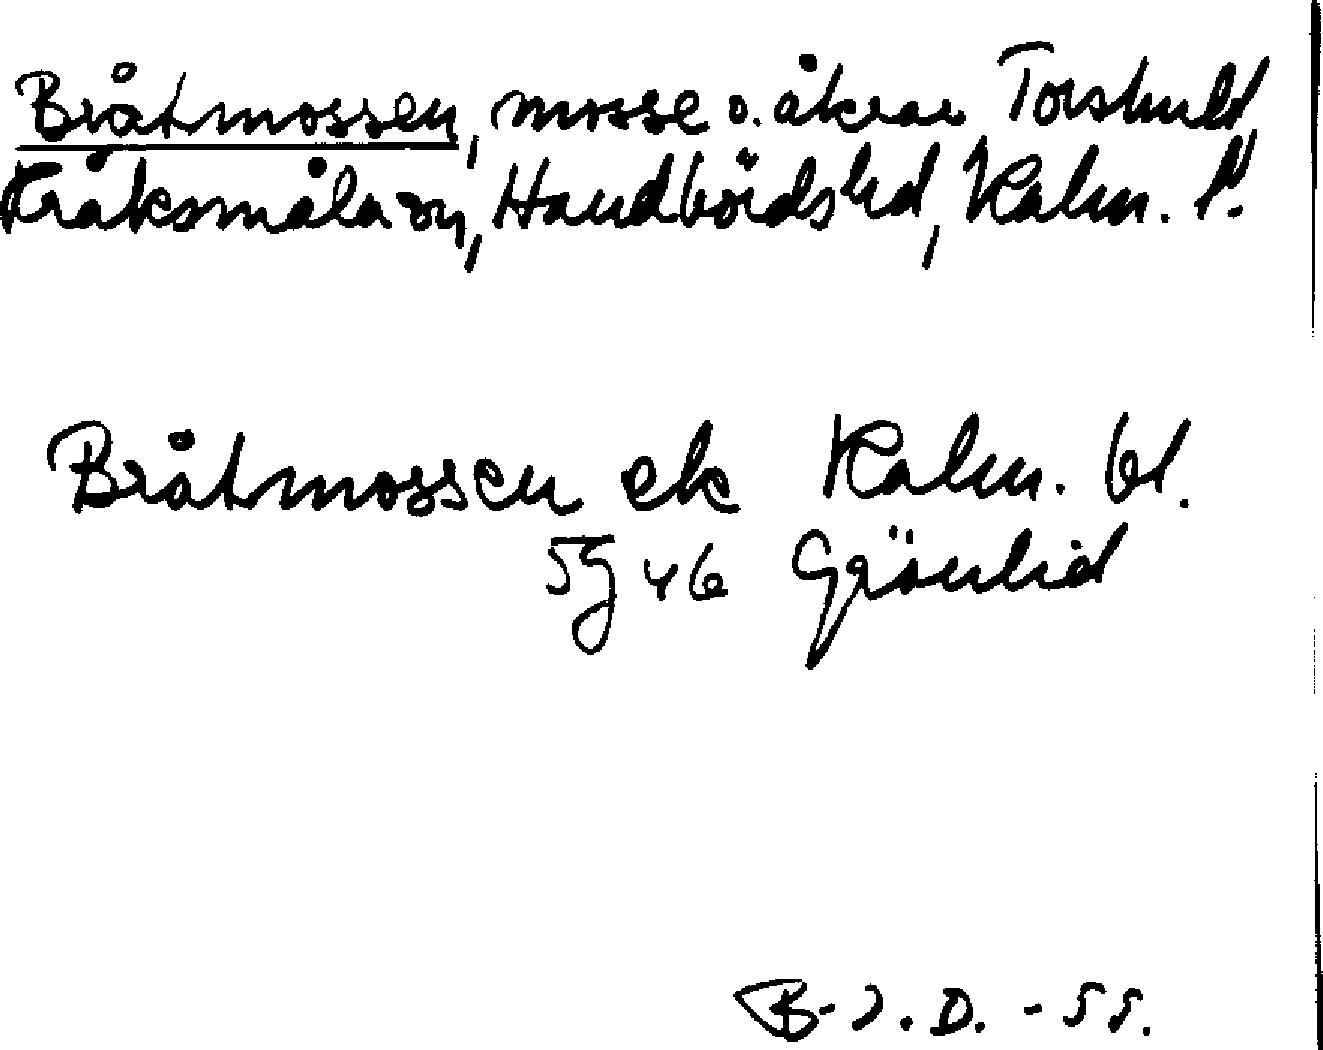 Bråtmossen, mosse o. åkrar Torshult,
Kråksmåla sn, Handbörds hd, Kalm. l.
Bråtmossen ek Kalm. bl.
5g 46 Grönlid
B-I.D. -55.